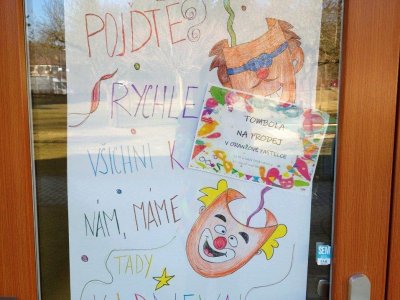 POJĎTE
RYCHLE
VŠICHNI K
NÁM, MÁME
TADY
TOMBOLA
NA PRODEJ
V ORANŽOVÉ PASTELCE
SEM